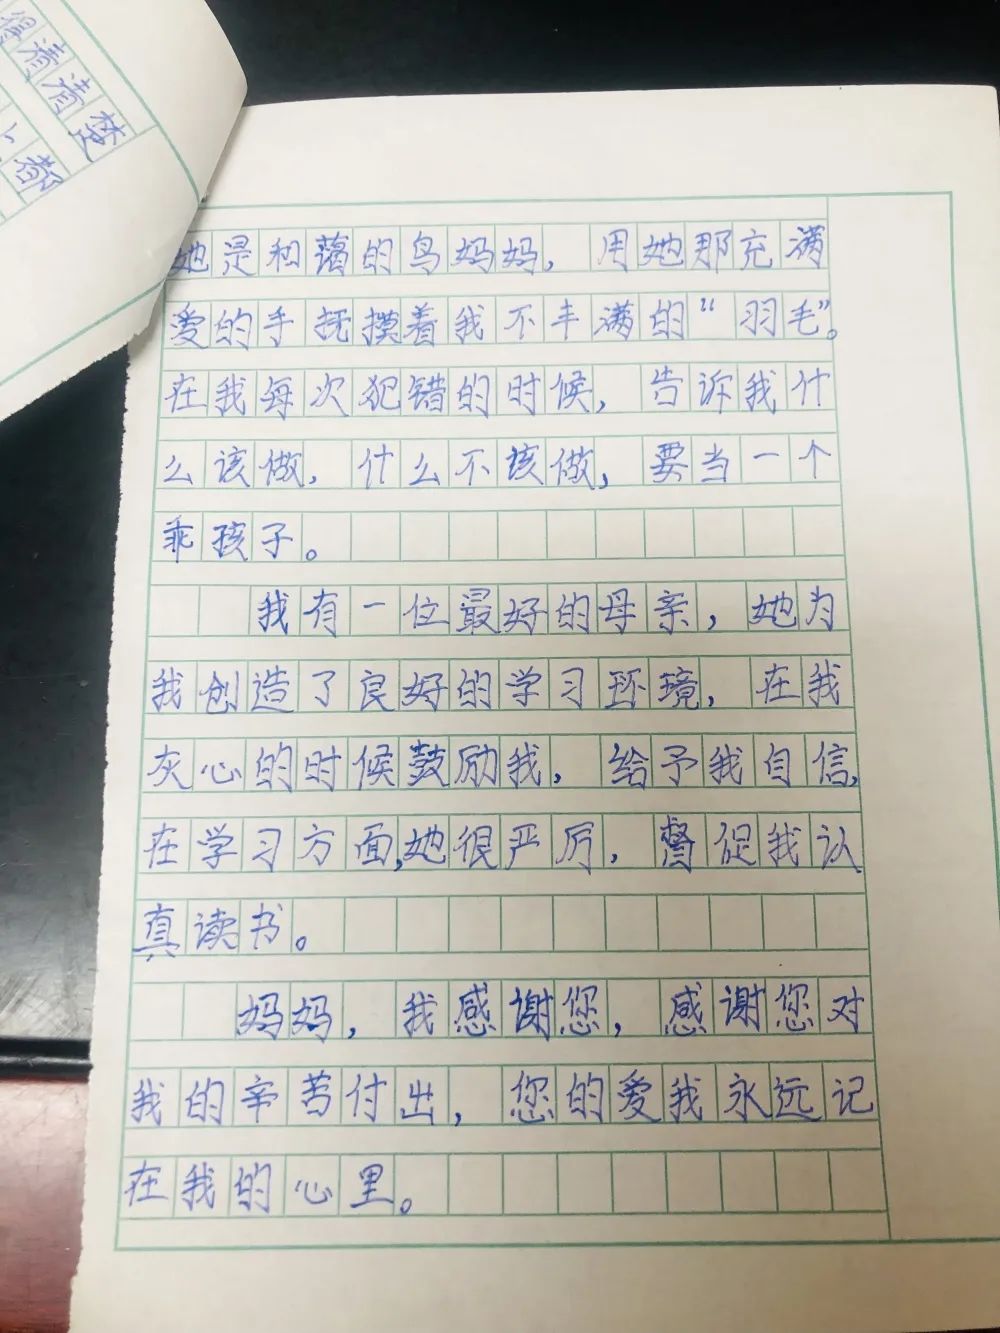 得清清楚
都
她是和蔼的鸟妈妈，用她那充满
爱的手抚摸着我不丰满的“羽毛”。
在我每次犯错的时候，告诉我什
么该做，什么不该做，要当一个
乖孩子。
我有一位最好的母亲，她为
我创造了良好的学习环境，在我
灰心的时候鼓励我，给予我自信，
在学习方面，她很严厉，督促我认
真读书。
妈妈，我感谢您，感谢您对
我的辛苦付出，您的爱我永远记
在我的心里。